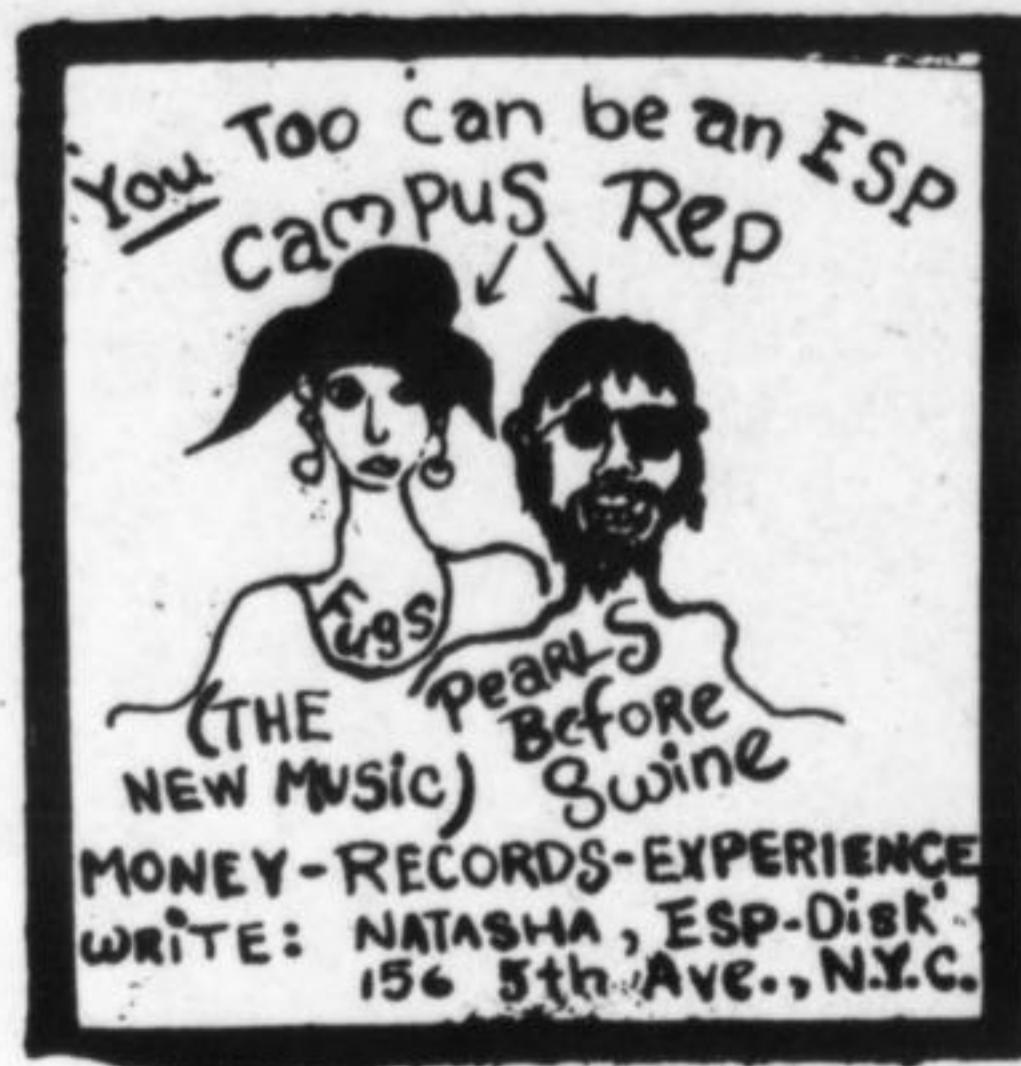 You Too can be an ESP
campus Rep
Fugs
(THE
NEW MUSiC)
PeaRLS
BefoRe
Swine
MONEY-RECORDS-EXPERIENCE
WRiTE: NATASHA, ESP-DiSK'
156 5th Ave., N.Y.C.